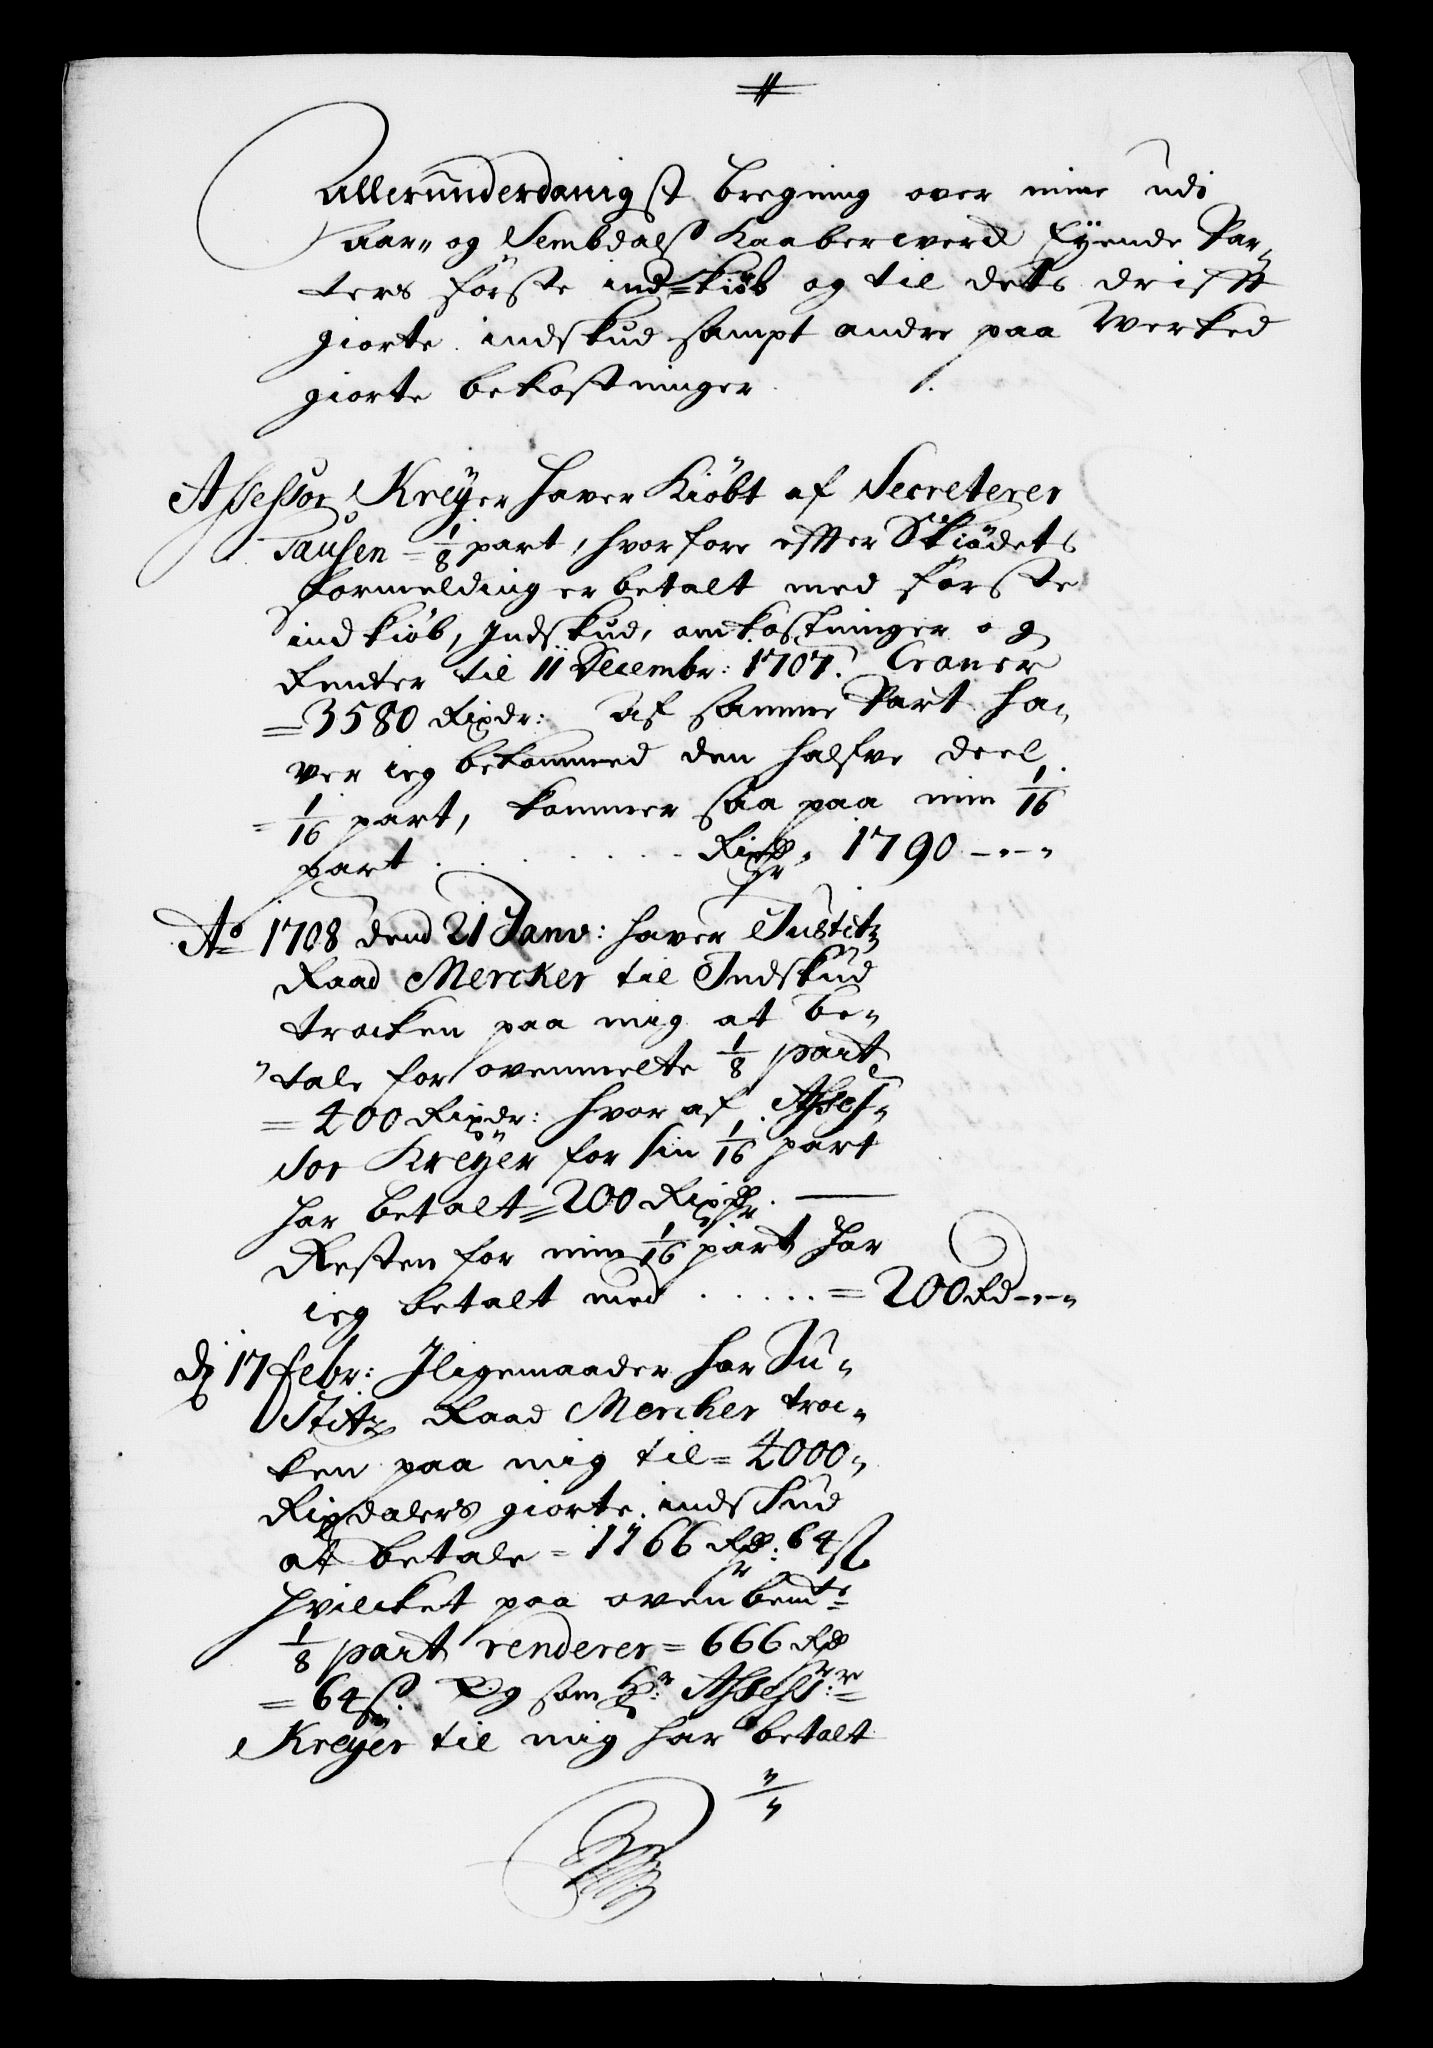 Allerunderdanigst bregning over mine udi
Aar„ og Sembdals Kaaberwerck Eÿende Par„
ters förste ind=kiöb og til dets drifft
giorte indskud sampt andre paa Werked
giorte bekostninger.
Assessor Kreÿer haver Kiöbt af Secreterer
Tausen = 1/8 part, hvorfore effter Skiödets
formelding er betalt med förste
indkiöb, Indskud, omkostninger og
Renter til 11 Decembr: 1707. Croner
= 3580 Rixdr: Af samme Part ha„
ver ieg bekommed den halfve deel
= 1/16 part, kommer saa paa min 1/16
part . . . . . . . Rixdr „ 1790 - „ - „
Ao 1708 dend 21 Janv: haver Justitz
Raad Mercker til Indskud
trocken paa mig at be„
„tale for ovenmelte 1/8 part
= 400 Rixdr: hvor af Asses„
sor Kreÿer for sin 1/16 part
har betalt = 200 Rixdr.
Resten for min 1/16 part har
ieg betalt med . . . . . = 200 Rd - „ - „
d 17 febr: Iligemaader har Ju„
stitz Raad Mercker troc„
ken paa mig til = 4000 „
Rixdalers giorte indskud
at betale = 1766 Rdr: 64 s
hvilcket paa ovenbemte
1/8 part renderer = 666 Rdr
= 64 s. Og som Hr: Assessr:
Kreÿer til mig har betalt